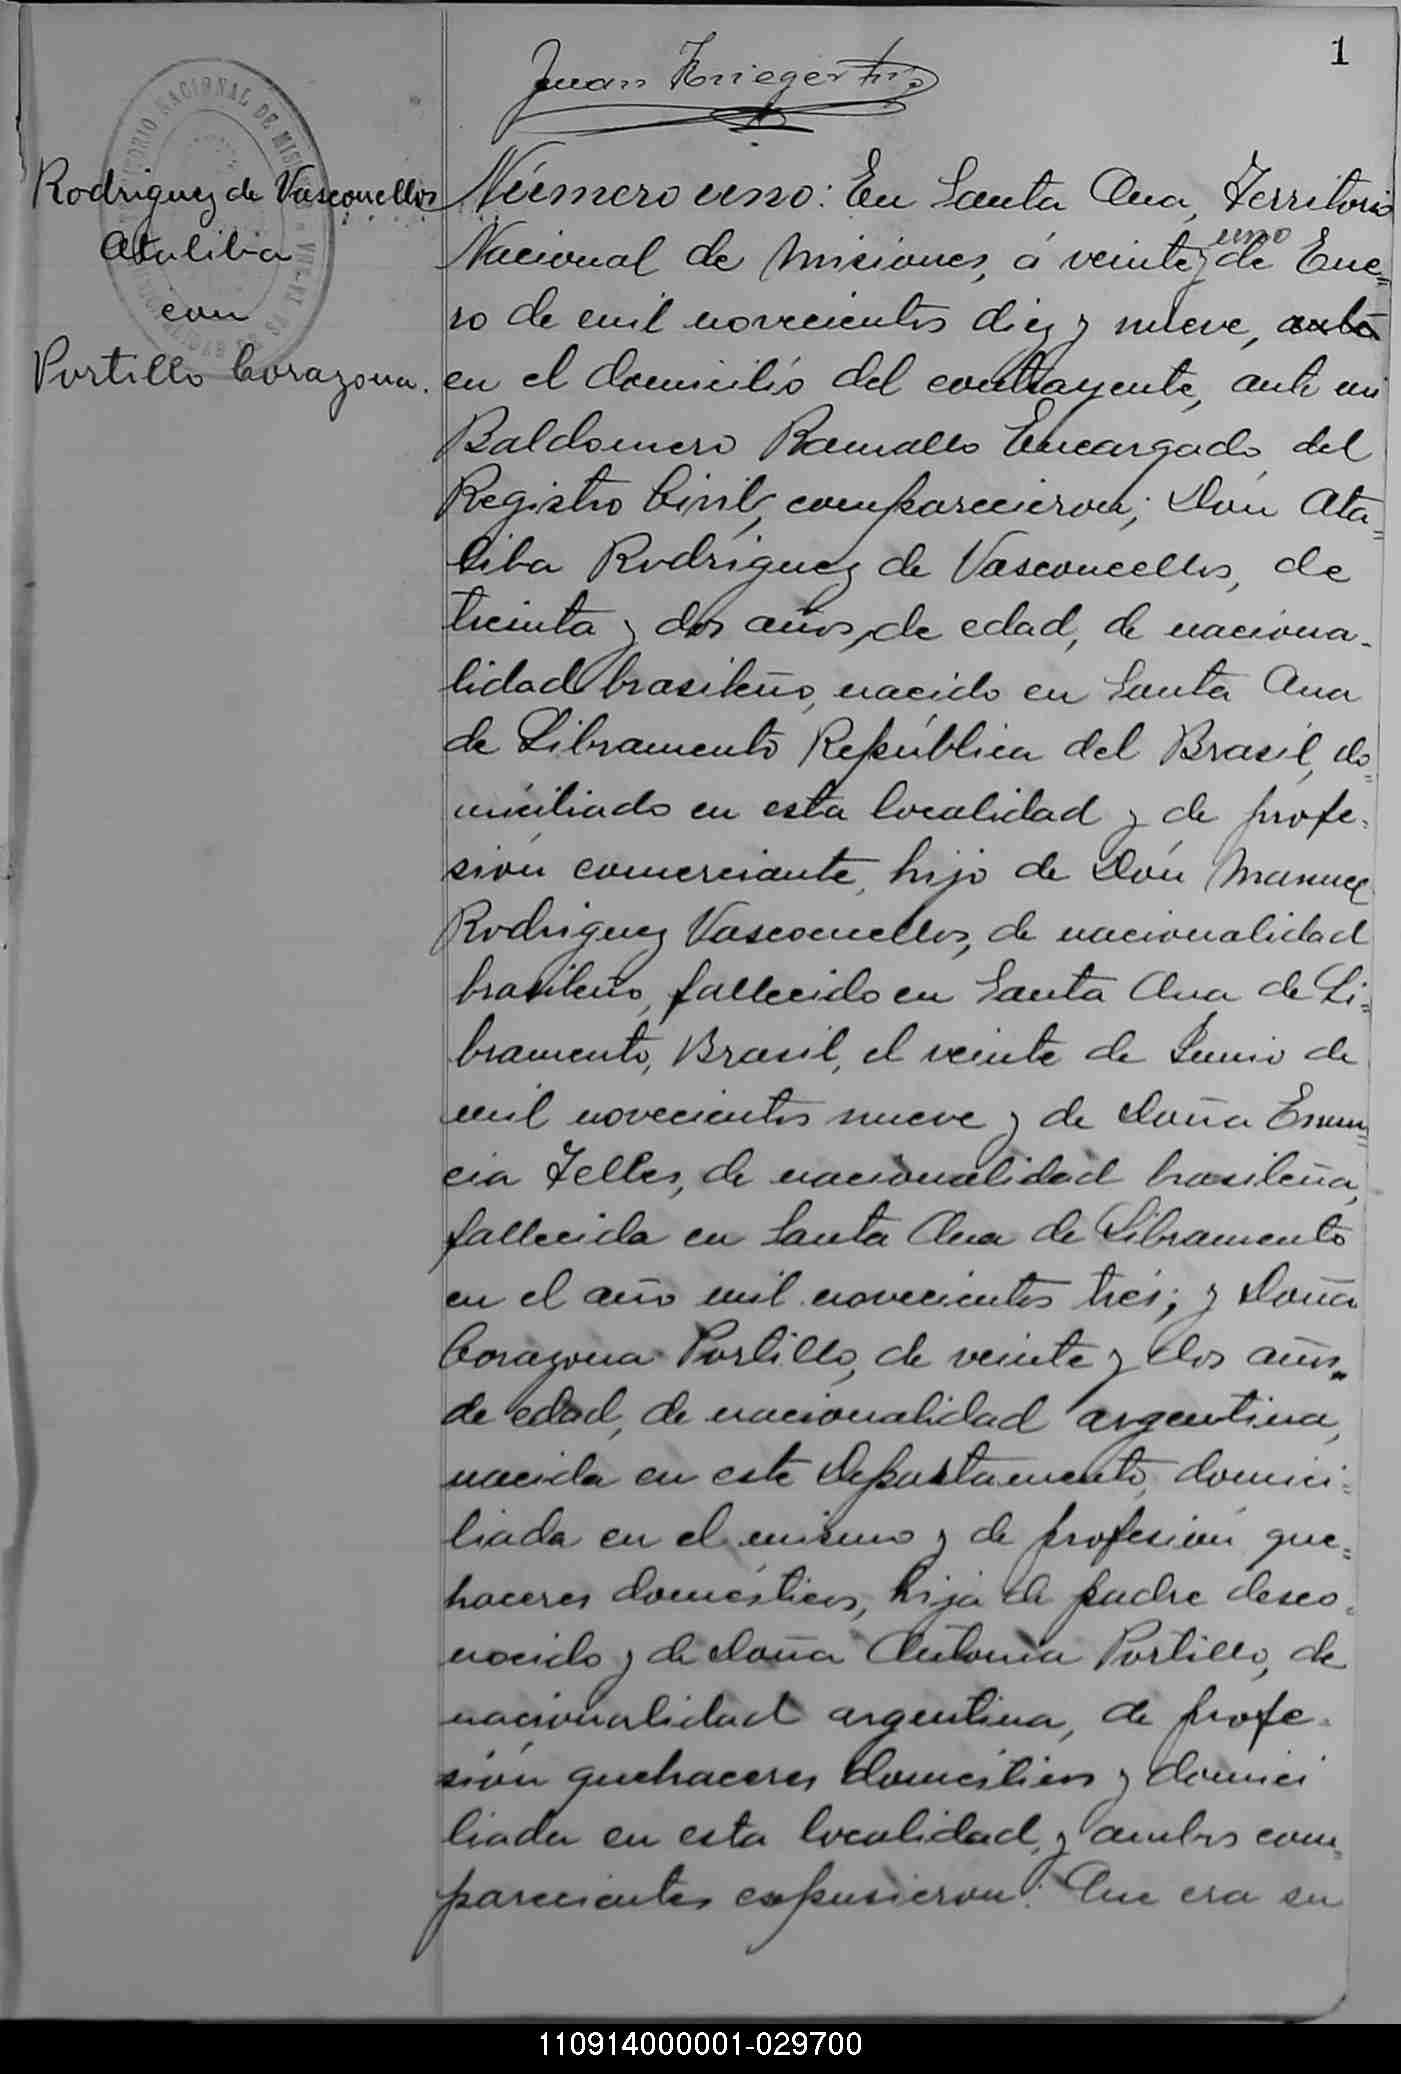 1
Juan Kriegerthio
TERRITORIO NACIONAL DE MISIONES
Rodriguez de Vasconcellos
Ataliba
con
Portillo Corazona.
Número uno: En Santa Ana, Territorio
Nacional de Misiones, á veinte y uno de Ene=
ro de mil novecientos diez y nueve, ante
en el domicilio del contrayente, ante mi
Baldomero Ramallo Encargado del
Registro Civil, comparecieron; Don Ata=
liba Rodriguez de Vasconcellos, de
treinta y dos años, de edad, de naciona-
lidad brasileño, nacido en Santa Ana
de Libramento República del Brasil, do=
miciliado en esta localidad y de profe=
sion comerciante, hijo de Don Manuel
Rodriguez Vasconcellos, de nacionalidad
brasileño, fallecido en Santa Ana de Li=
bramento, Brasil, el veinte de Junio de
mil novecientos nueve y de Doña
cia Telles, de nacionalidad brasileña,
fallecida en Santa Ana de Libramento
en el año mil novecientos trés; y Doña
Corazona Portillo, de veinte y dos años,
de edad, de nacionalidad argentina,
nacida en este Departamento, domici=
liada en el mismo y de profesion que=
haceres domésticos, hija de padre desco=
nocido y de Doña Antonia Portillo, de
nacionalidad argentina, de profe-
sión quehaceres domésticos y domici
liada en esta localidad, y ambos com=
parecientes expusieron: Que era su
110914000001-029700